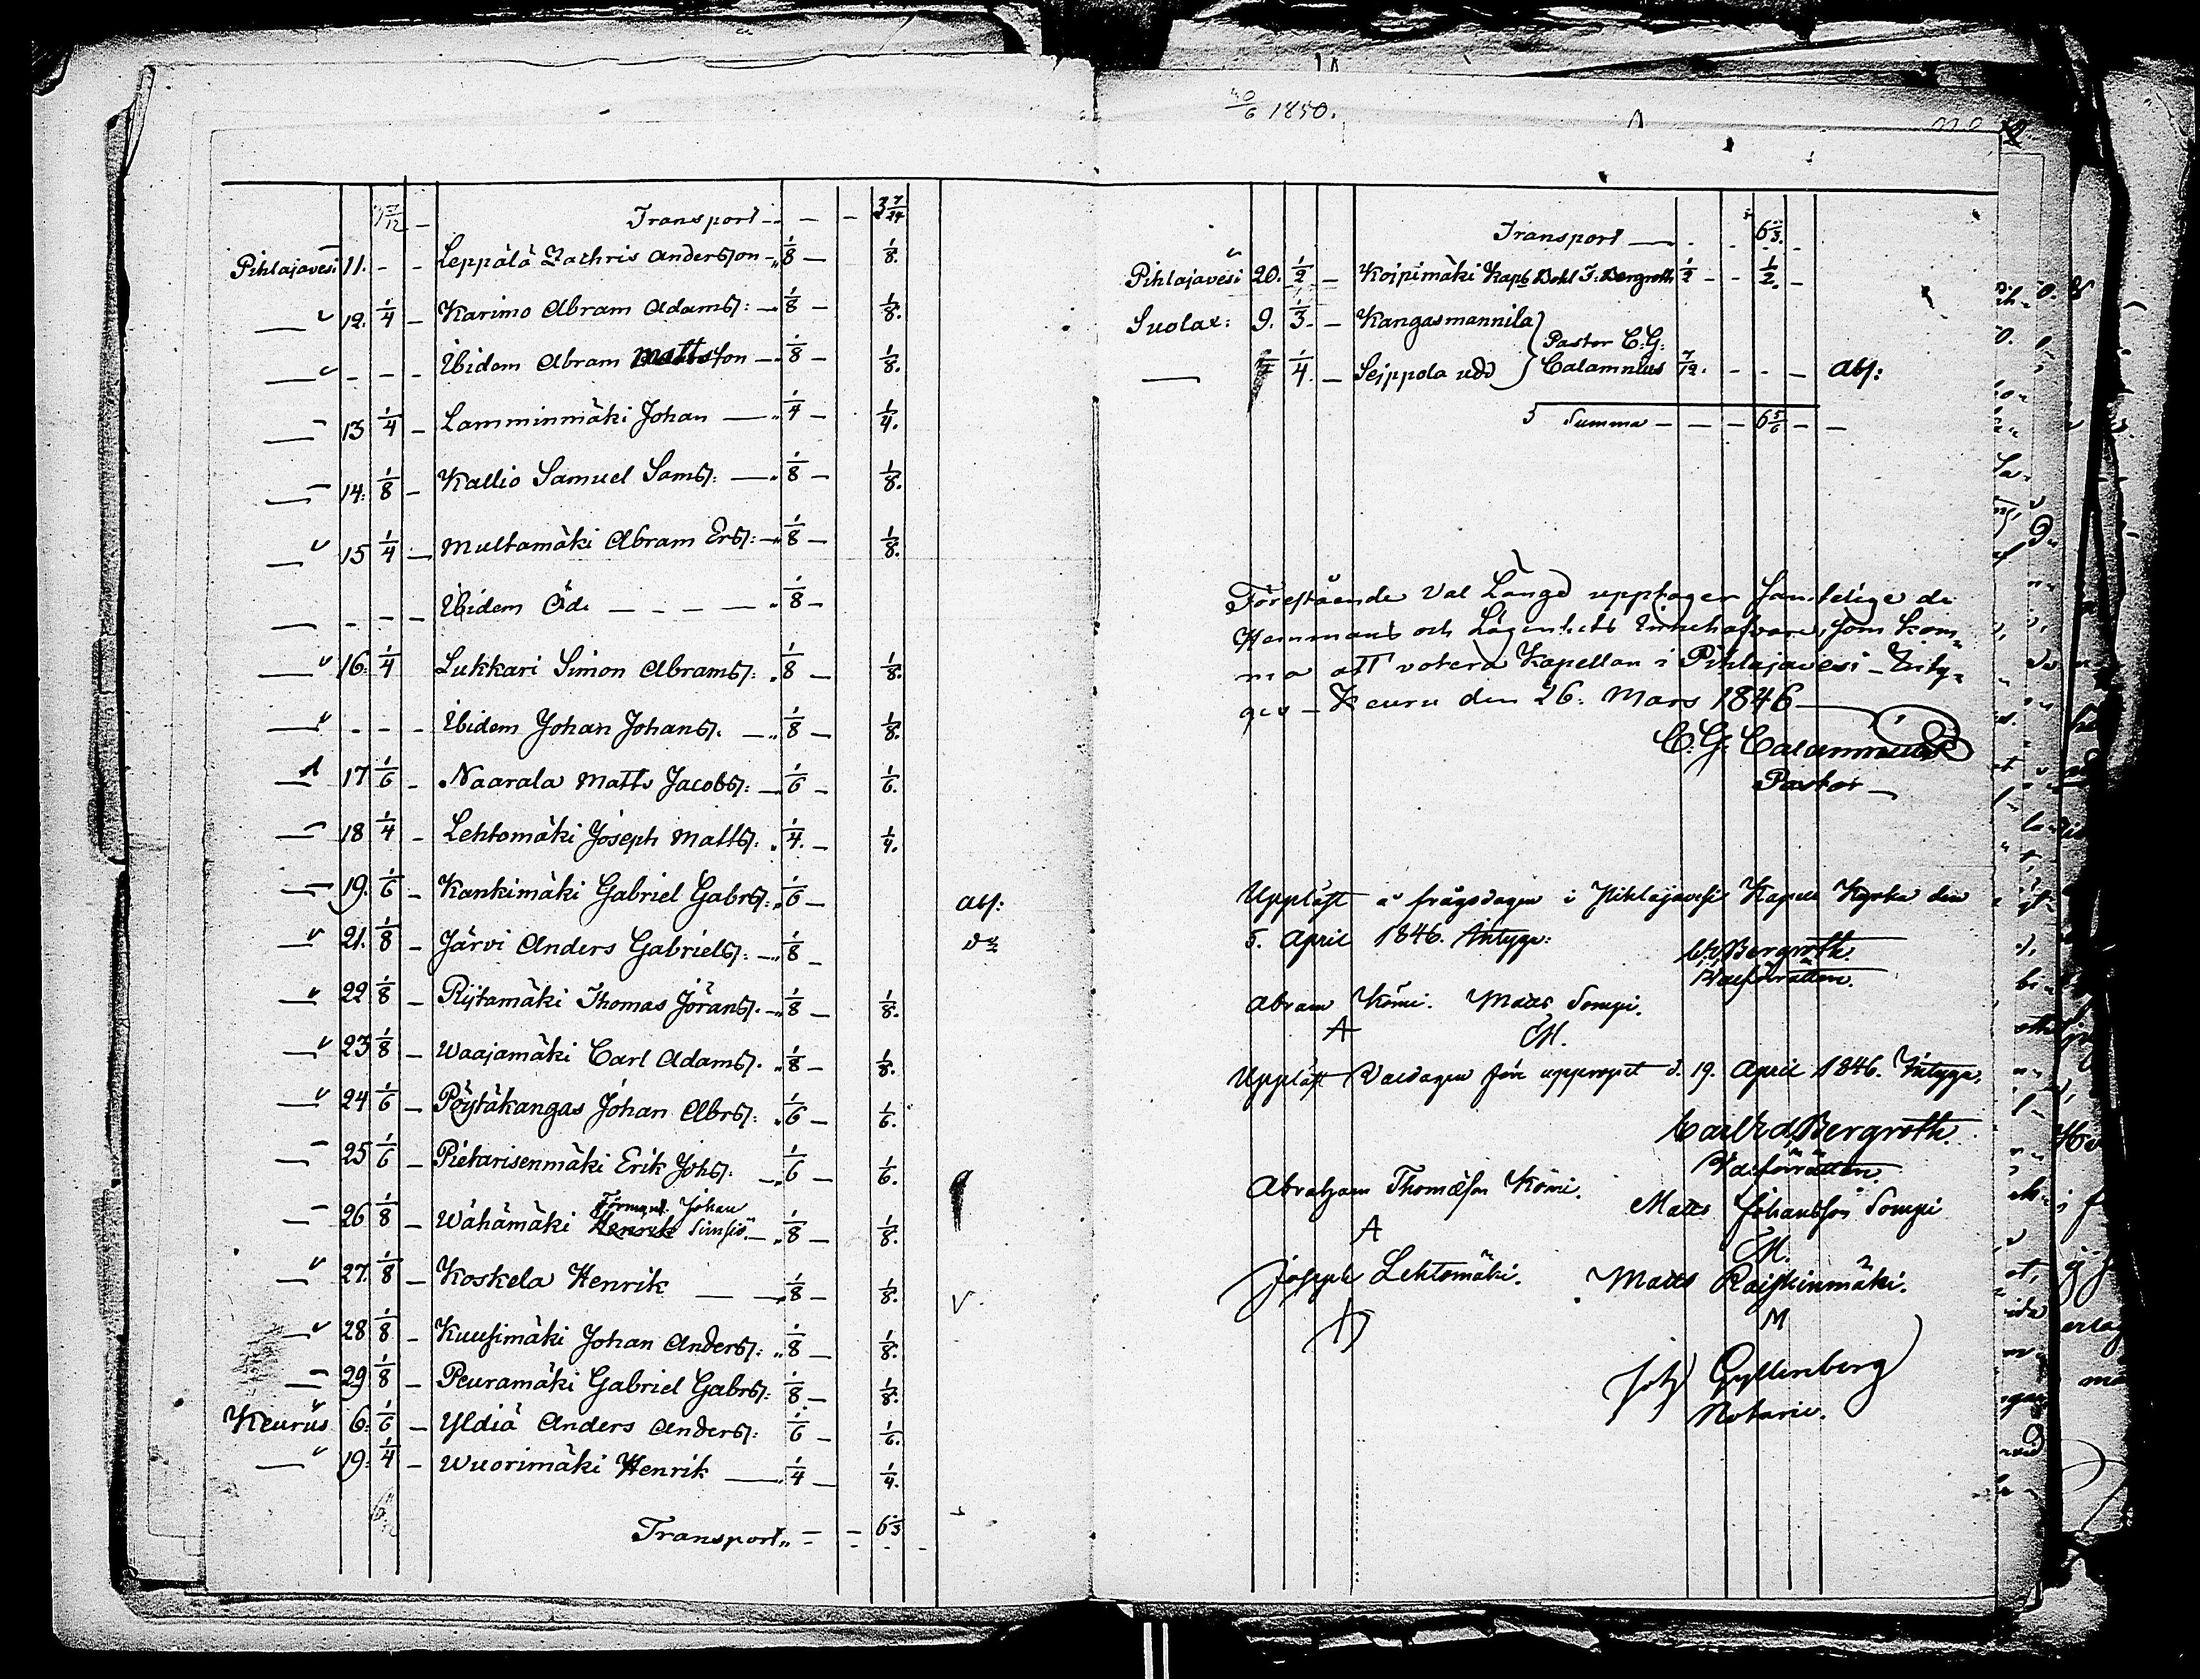 1850.
Transport - - - 3 7/24
Pihlajavesi 11. - - Leppälä Zachris Andersson - 1/8 - 1/8.
12. 1/4 - Karimo Abram Adamss: - 1/8 - 1/8.
- - - Ibidem Abram Mattsson - 1/8 - 1/8.
13 1/4 - Lamminmäki Johan - 1/4 - 1/4.
14. 1/8 - Kallio Samuel Sams: - 1/8 - 1/8.
15 1/4 - Multamäki Abram Ers: - 1/8 - 1/8.
- - - Ibidem Öde - - - - 1/8 -
16. 1/4 Lukkari Simon Abrams: 1/8 - 1/8.
- - - Ibidem Johan Johans. - 1/8 - 1/8.
17 1/6 - Naarala Matts Jacobs: - 1/6 - 1/6.
18 1/4 - Lehtomäki Joseph Matts: 1/4. - 1/4.
19. 1/6 - Kankimäki Gabriel Gabrs: 1/6 - abs:
21. 1/8 - Järvi Anders Gabriels: - 1/8 - do
22 1/8 - Rijtamäki Thomas Jörans. - 1/8 - 1/8.
23 1/8 - Waajamäki Carl Adams. 1/8 - 1/8.
24 1/6 - Pöytäkangas Johan Abrs: 1/6 - 1/6.
25 1/6 - Pietarisenmäki Erik Johs: - 1/6 - 1/6.
Förmynd. Johan
26 1/8 - Wähämäki Henrik - 1/8 - 1/8.
27. 1/8 - Koskela Henrik - - 1/8 - 1/8. V.
28 1/8 - Kuusimäki Johan Anders: 1/8 - 1/8.
29 1/8 - Peuramäki Gabriel Gabrs: 1/8 - 1/8.
Keurus 6. 1/6 - Yldiä Anders Anders: 1/6 - 1/6.
19. 1/4 - Wuorimäki Henrik - 1/4 - 1/4.
Transport - - 6 1/3
Transport - - - 6 1/3. -
Pihlajavesi 20. 1/2 - Koipimäki Kapls Bohl J. Bergroth 1/2 - - 1/2. -
Suolax: 9. 1/3. - Kangasmannila
Pastor C. G:
1/4. - Seippola udd Calamnius 7/12. - - - abs:
Summa - - - 6 5/6 - -
Förestående Val Längd upptager samtelige de
Hemmans och Lägenhets Innehafvare, som kom„
ma att votera Kapellan i Pihlajavesi - Inty„
ges - Keuru den 26. Mars 1846
C. G: Calamnius
Pastor
Uppläst å frågodagen i Pihlajavesi Kapell Kyrka den
5. April 1846. Intyga:
Bergroth.
Valförrätten.
Abram Kömi. Matts Sompi.
A M.
Uppläst Valdagen före uppropet d. 19. April 1846. Intyga,
Carl Ed. Bergroth.
Valförrätten.
Abraham Thomasson Kömi.
Matts Johansson Sompi
A M.
Joseph Lehtomäki. Matts Raiskinmäki.
M
Joh Gyllenberg
Notarie.